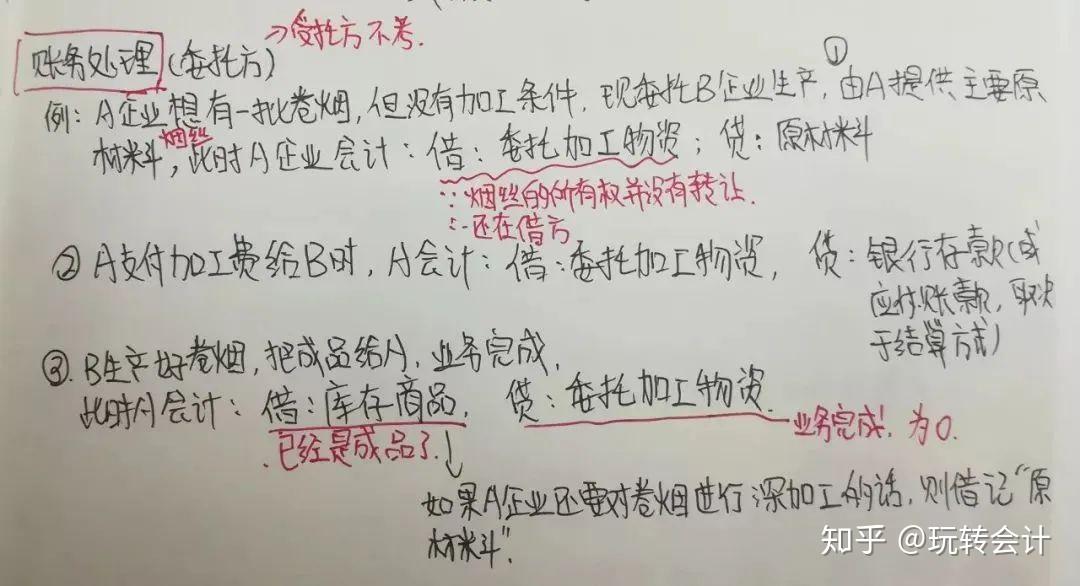 →受托方不考.
账务处理(委托方)
①
例：A企业想有一批卷烟，但没有加工条件，现委托B企业生产，由A提供主要原
烟丝
材料，此时A企业会计：借：委托加工物资；贷：原材料
∵烟丝的所有权并没有转让.
∴还在借方
② A支付加工费给B时，A会计：借：委托加工物资，贷：银行存款(或
应付账款，取决
于结算方式)
③.B生产好卷烟，把成品给A，业务完成，
此时A会计：借：库存商品，贷：委托加工物资.
业务完成，为0.
已经是成品了.
如果A企业还要对卷烟进行深加工的话，则借记“原
材料”.
知乎 @玩转会计